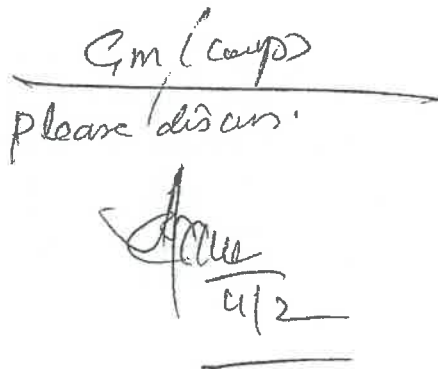 Gm (camps)
please discuss.
4/2